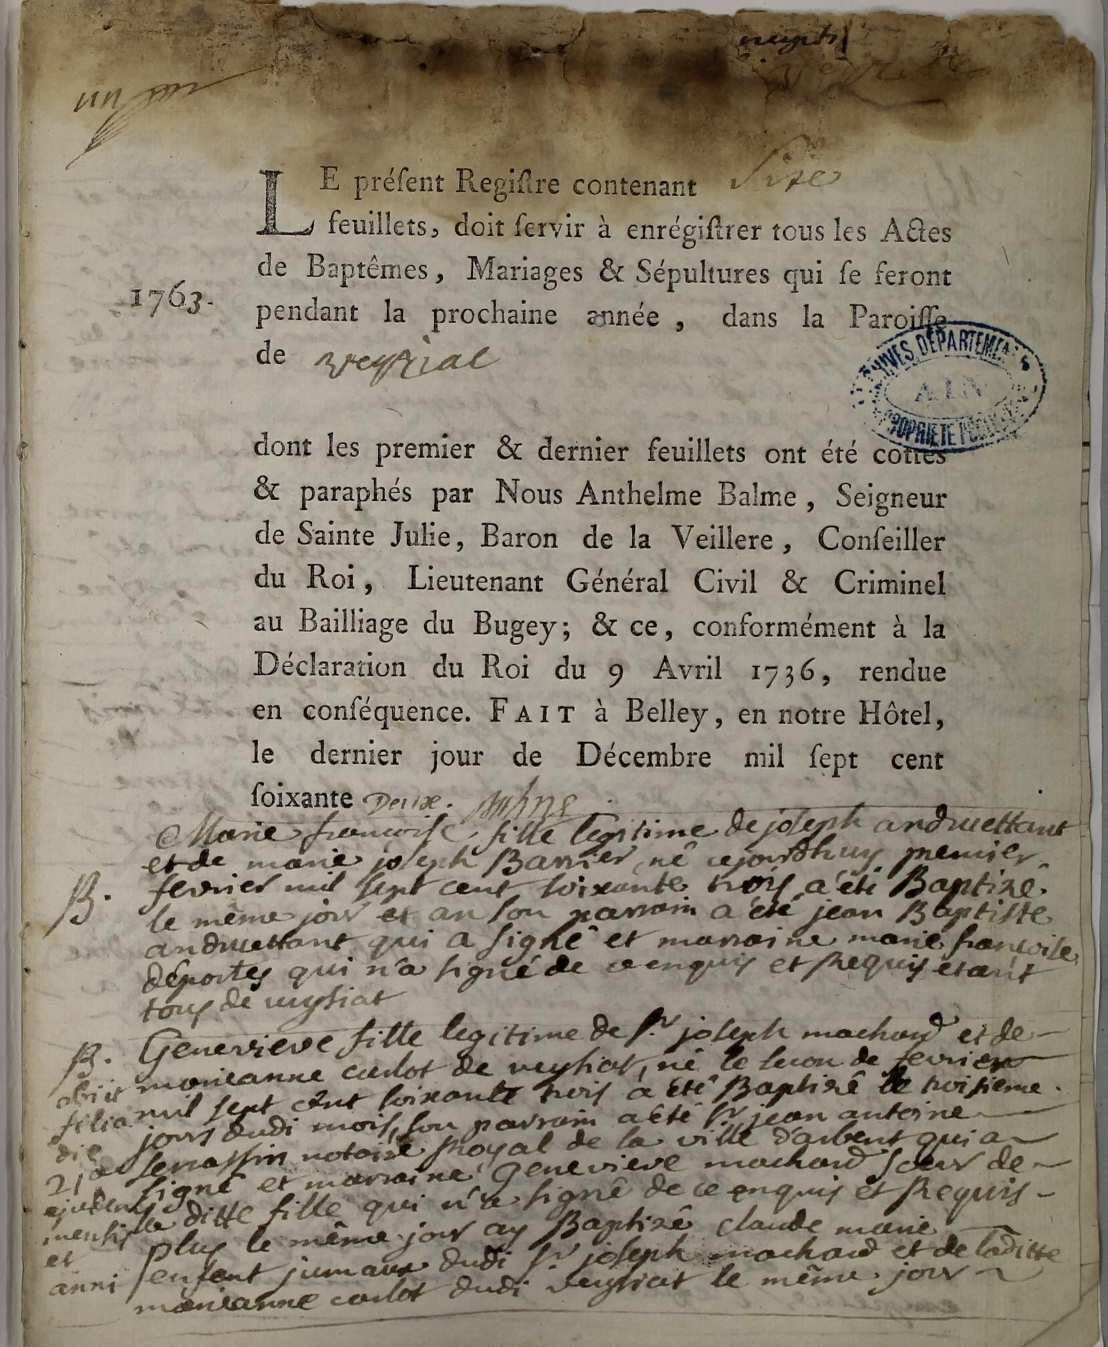 LE préſent Regiſtre contenant Six
feuillets, doit ſervir à enrégiſtrer tous les Actes
de Baptêmes, Mariages & Sépultures qui ſe feront
1763.
pendant la prochaine année, dans la Paroiſſe
de veyziat
ARCHIVES DÉPARTEMENTALES
AIN
PROPRIÉTÉ PUBLIQUE
dont les premier & dernier feuillets ont été cottés
& paraphés par Nous Anthelme Balme, Seigneur
de Sainte Julie, Baron de la Veillere, Conſeiller
du Roi, Lieutenant Général Civil & Criminel
au Bailliage du Bugey; & ce, conformément à la
Déclaration du Roi du 9 Avril 1736, rendue
en conſéquence. FAIT à Belley, en notre Hôtel,
le dernier jour de Décembre mil ſept cent
ſoixante Deux.
Marie francoise fille legitime de joseph andruettant
et de marie joseph Barrier, né cejourdhuy premier
B.
fevrier mil sept cent soixante trois a été Baptizé
le même jour et an son parrain a été jean Baptiste
andruettant qui a signé et marraine marie francoise
déportes qui n'a signé de ce enquis et Requis etant
tous de veysiat
B. Genevieve fille legitime de Sr joseph machard et de
obiit marieanne carlot de veysiat, né le secon de fevrier
filia mil sept cent soixante trois a été Baptizé le troisieme
die jours dudi mois, son parrain a été Sr jean antoine
21a serrassin notaire Royal de la ville d'arbent qui a
ejusdem signé et marraine Genevieve machard soeur de
mensis la ditte fille qui n'a signé de ce enquis et Requis
et plus le même jour ay Baptizé claude marie
anni enfent jumaux dudi Sr joseph machard et de laditte
marieanne carlot dudi veysiat le même jour